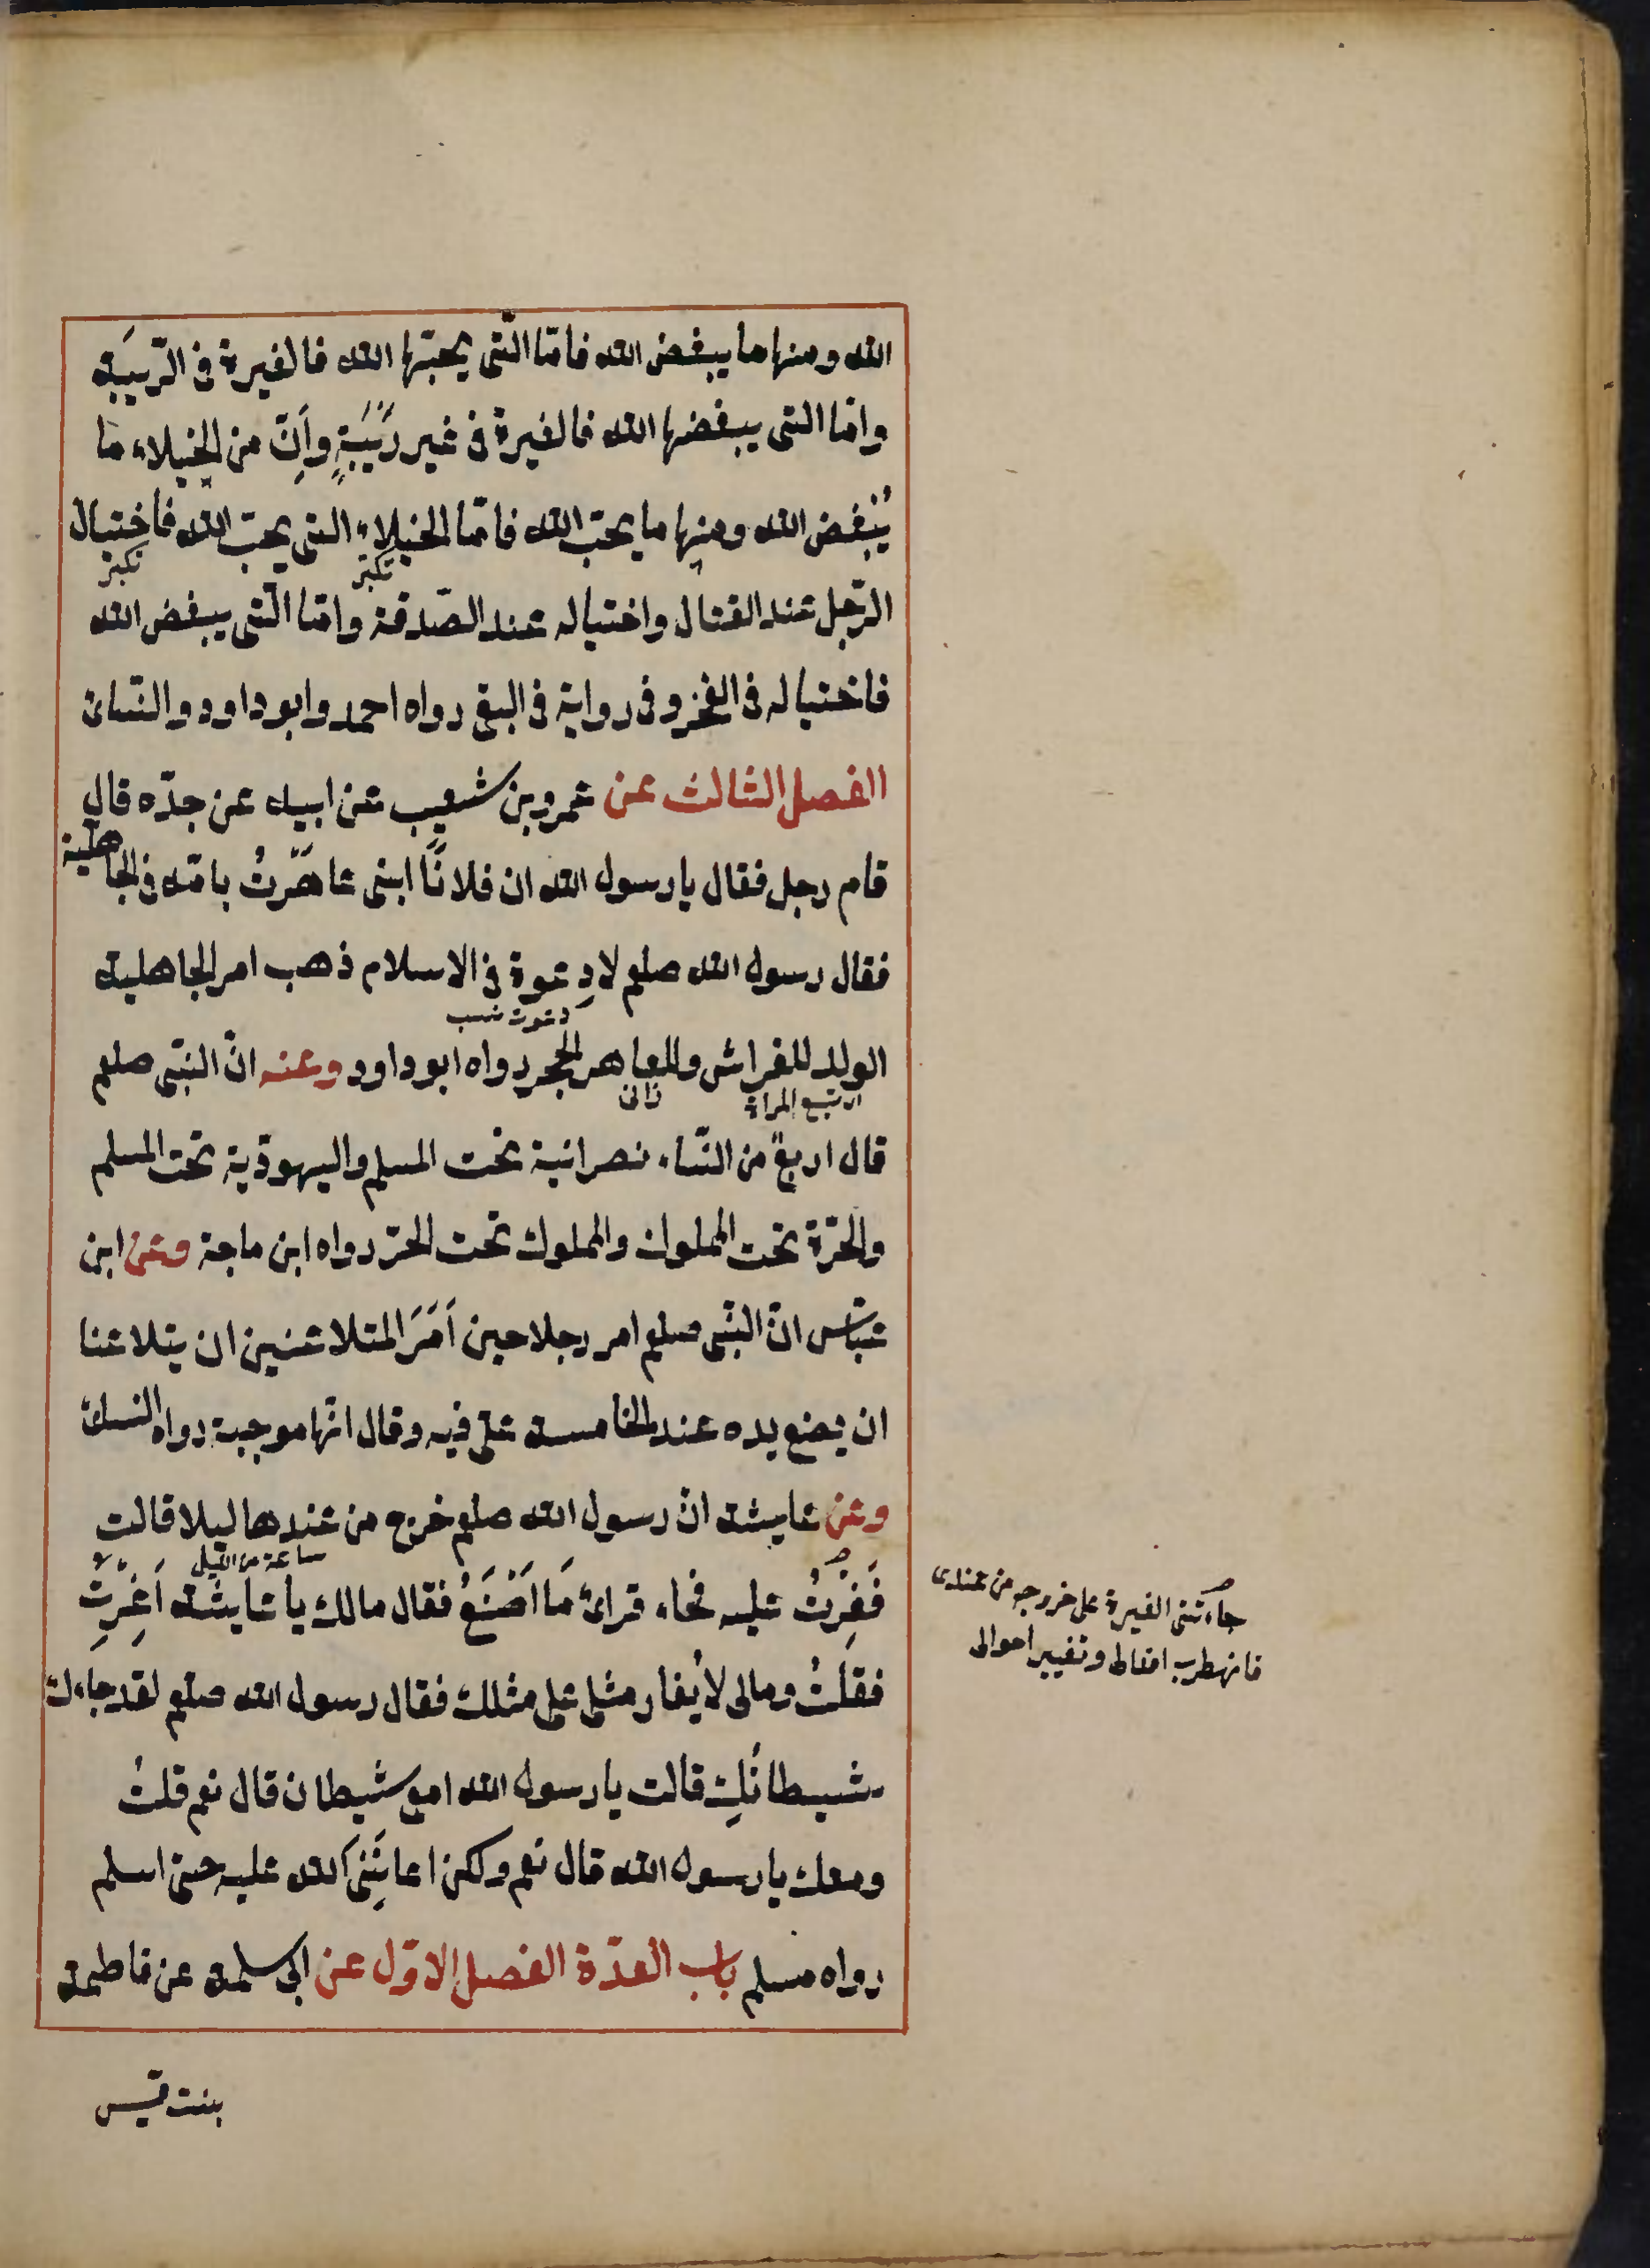 الله ومنها ما يبغض الله فامّا الّتى يحبّها الله فالغيرة فى الرّيبَة
وامّا التى يبغضها الله فالغيرة فى غير رَيْبَةٍ وَاِنّ من الخيلاء ما
يُبْغض الله ومنها ما يحبّ الله فامّا الخيلاء التى يحبّ الله فاختيال
تكبّر تكبّر
الرّجل عند القتال واختياله عند الصّدقة وامّا الّتى يبغض الله
فاختياله فى الفخر وفى رواية فى البغى رواه احمد وابو داود والنّسائ
الفصل الثالث عن عمرو بن شعيب عن ابيه عن جدّه قال
قام رجل فقال يا رسول الله ان فلانًا ابنى عاهَرْتُ بامّه فى الجاهلية
فقال رسول الله صلعم لا دِعوة فى الاسلام ذهب امر الجاهلية
دعوت نسب
الولد للفراش وللعاهر الحجر رواه ابو داود وعنه انّ النبّى صلعم
زانى
قال اربع من النّساء نصرانية تحت المسلم واليهوديّة تحت المسلم
والحرّة تحت المملوك والمملوك تحت الحرّ رواه ابن ماجة وعن ابن
عبّاس انّ النبّى صلعم امر رجلا حين اَمَرَ المتلاعنين ان يتلاعنا
ان يضع يده عند الخامسة على فيه وقال انّها موجبة رواه النسائ
وعن عايشة انّ رسول الله صلعم خرج من عندها ليلا قالت
ساعة من الليل
فَغِرْتُ عليه فجاء فرائ مَا اَصْنَعُ فقال مالك يا عايشة اَغِرْتِ
فقلتُ ومالى لا يُغار مثلى على مثلك فقال رسول الله صلعم لقد جاءك
شيطانُكِ قالت يا رسول الله امع شيطان قال نعم قلتُ
ومعك يا رسول الله قال نعم ولكن اعانَنِى الله عليه حتى اسلم
رواه مسلم باب العدّة الفصل الاوّل عن ابى سلمة عن فاطمة
بنت قيس
جاءتنى الغيرة على خروجه من عندى
فاضطرب افعالى وتغيير احوالى